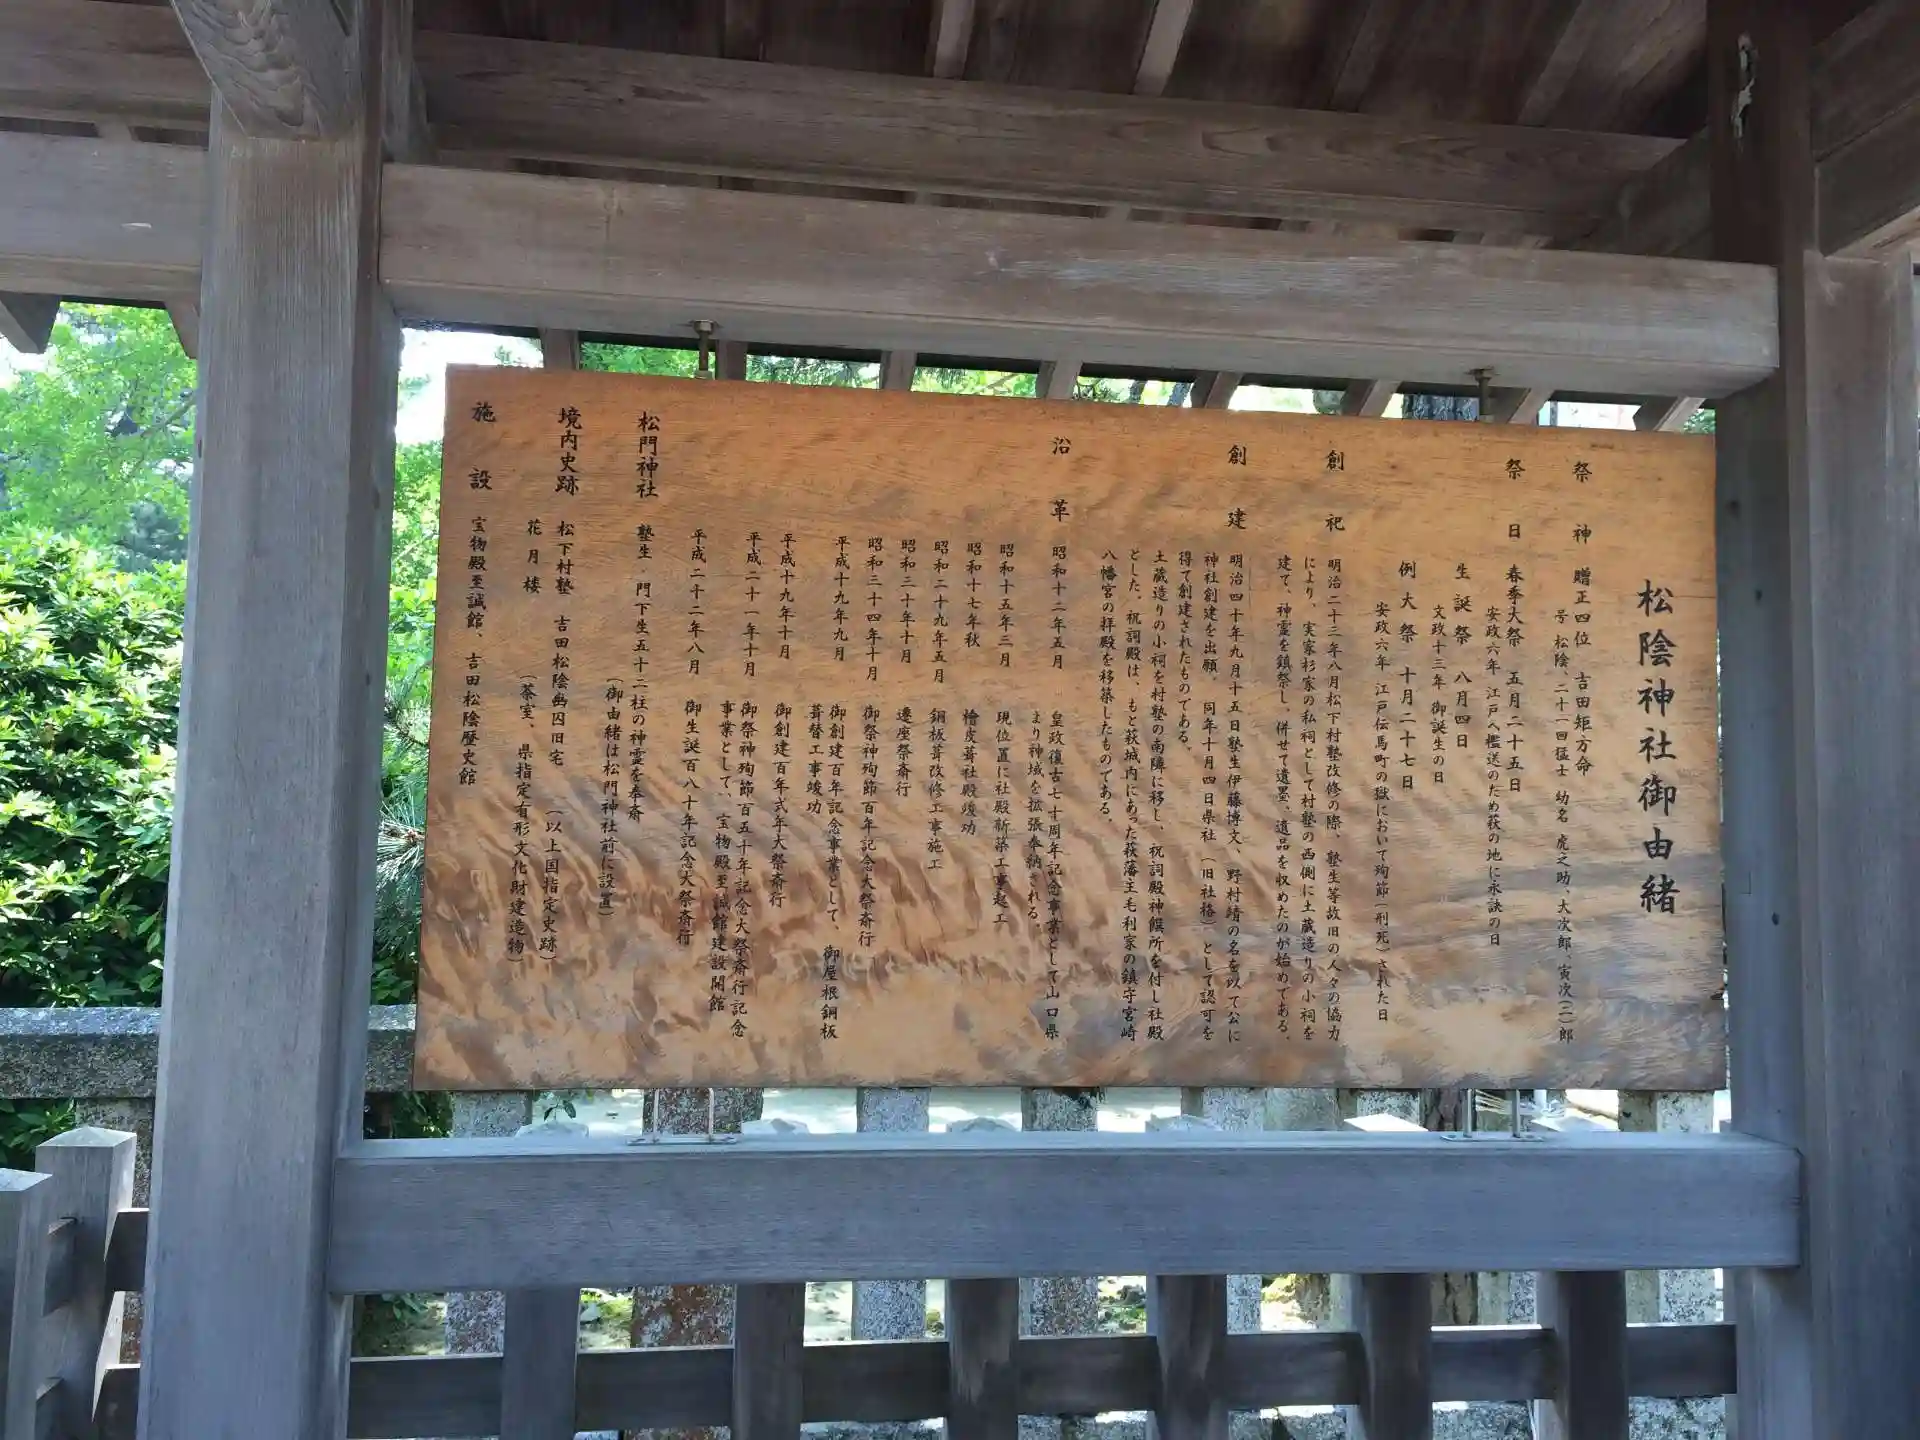 松陰神社御由緒
祭神 贈正四位 吉田矩方命
号 松陰、二十一回猛士 幼名 虎之助、大次郎、寅次(二)郎
祭日 春季大祭 五月二十五日
安政六年 江戸へ檻送のため萩の地に永訣の日
生誕祭 八月四日
文政十三年 御誕生の日
例大祭 十月二十七日
安政六年 江戸伝馬町の獄において殉節(刑死)された日
創祀 明治二十三年八月松下村塾改修の際、塾生等故旧の人々の協力
により、実家杉家の私祠として村塾の西側に土蔵造りの小祠を
建て、神霊を鎮祭し、併せて遺墨、遺品を収めたのが始めである。
創建 明治四十年九月十五日塾生伊藤博文、野村靖の名を以て公に
神社創建を出願、同年十月四日県社(旧社格)として認可を
得て創建されたものである。
土蔵造りの小祠を村塾の南隣に移し、祝詞殿神饌所を付し社殿
とした。祝詞殿は、もと萩城内にあった萩藩主毛利家の鎮守宮崎
八幡宮の拝殿を移築したものである。
沿革 昭和十二年五月 皇政復古七十周年記念事業として山口県
より神域を拡張奉納される。
昭和十五年三月 現位置に社殿新築工事起工
昭和十七年秋 檜皮葺社殿竣功
昭和二十九年五月 銅板葺改修工事施工
昭和三十年十月 遷座祭斎行
昭和三十四年十月 御祭神殉節百年記念大祭斎行
平成十九年九月 御創建百年記念事業として、御屋根銅板
葺替工事竣功
平成十九年十月 御創建百年式年大祭斎行
平成二十一年十月 御祭神殉節百五十年記念大祭斎行記念
事業として、宝物殿至誠館建設開館
平成二十二年八月 御生誕百八十年記念大祭斎行
松門神社 塾生・門下生五十二柱の神霊を奉斎
(御由緒は松門神社前に設置)
境内史跡 松下村塾 吉田松陰幽囚旧宅 (以上国指定史跡)
花月楼 (茶室、県指定有形文化財建造物)
施設 宝物殿至誠館、吉田松陰歴史館